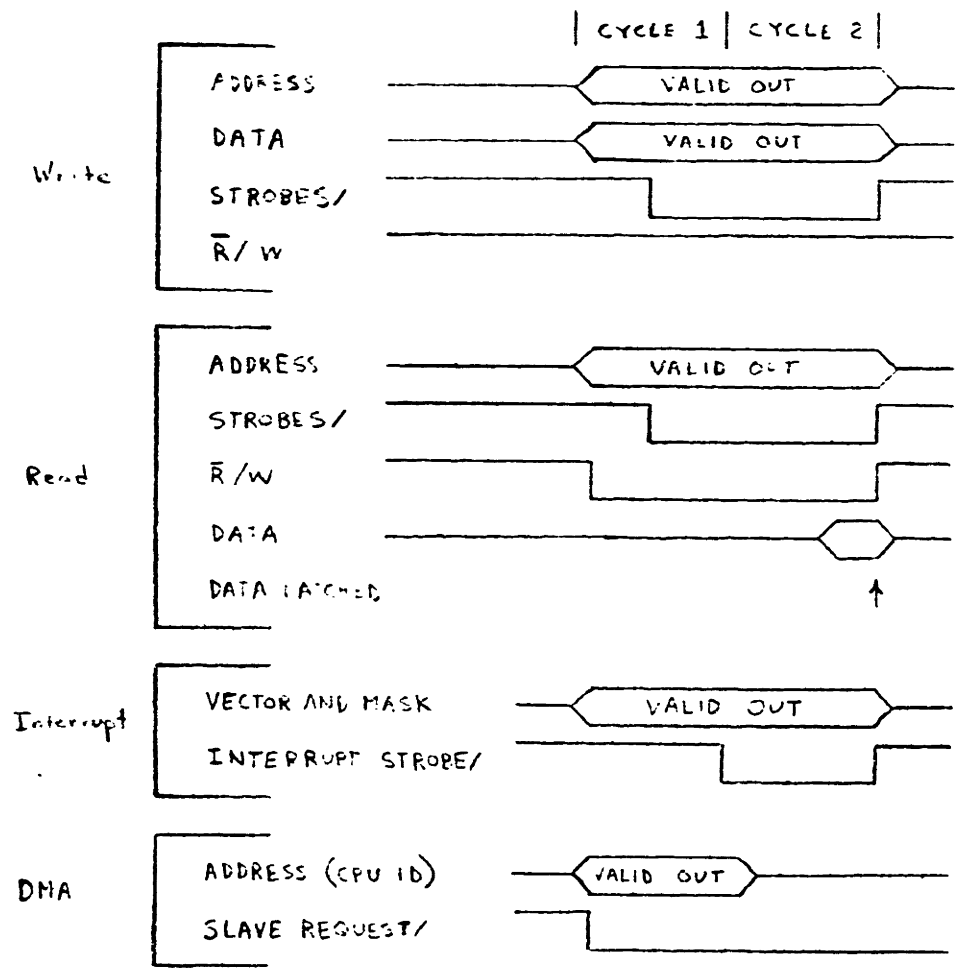 CYCLE 1 | CYCLE 2
Write
ADDRESS VALID OUT
DATA VALID OUT
STROBES/
R̅/W
Read
ADDRESS VALID OUT
STROBES/
R̅/W
DATA
DATA LATCHED
Interrupt
VECTOR AND MASK VALID OUT
INTERRUPT STROBE/
DMA
ADDRESS (CPU ID) VALID OUT
SLAVE REQUEST/